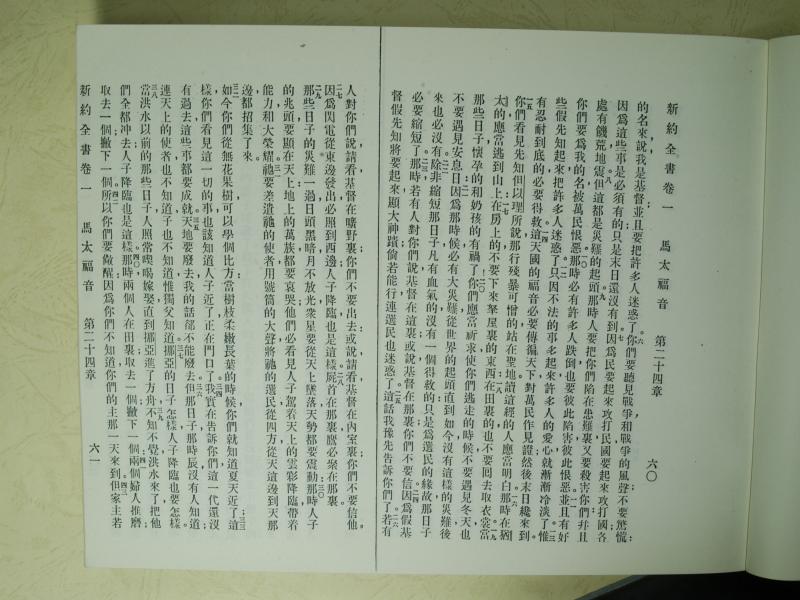 新約全書卷一　馬太福音　第二十四章　六〇
的名來說我是基督並且要把許多人迷惑了六你們要聽見戰爭和戰爭的風聲不要驚慌
因爲這些事是必須有的只是末日還沒有到七因爲民要起來攻打民國要起來攻打國各
處有饑荒地震八但這都是災難的起頭九那時人要把你們陷在患難裏又要殺害你們幷且
你們要爲我的名被萬民恨惡一〇那時必有許多人跌倒也要彼此陷害彼此恨惡一一並且有好
些假先知起來把許多人迷惑了一二只因不法的事多起來許多人的愛心就漸漸冷淡了一三惟
有忍耐到底的必要得救一四這天國的福音必要傳徧天下對萬民作見證然後末日纔來到
一五你們看見先知但以理所說那行殘暴可憎的站在聖地讀這經的人應當明白一六那時在猶
太的應當逃到山上一七在房上的不要下來拏屋裏的東西一八在田裏的也不要回去取衣裳一九當
那些日子懷孕的和奶孩的有禍了二〇你們應當祈求使你們逃走的時候不要遇見冬天也
不要遇見安息日二一因爲那時候必有大災難從世界的起頭直到如今沒有這樣的災難後
來也必沒有二二除非縮短那日子凡有血氣的沒有一個得救的只是爲選民的緣故那日子
必要縮短了二三那時若有人對你們說基督在這裏或說基督在那裏你們不要信二四因爲假基
督假先知將要起來顯大神蹟倘若能行連選民也迷惑了二五這話我豫先告訴你們了二六若有
人對你們說請看基督在曠野裏你們不要出去或說請看基督在內室裏你們不要信他
二七因爲閃電從東邊發出必照到西邊人子降臨也是這樣二八屍首在那裏鷹必聚在那裏
二九那些日子的災難一過日頭黑暗月不放光衆星要從天上墜落天勢都要震動三〇那時人子
的兆頭要顯在天上地上的萬族都要哀哭他們必看見人子駕着天上的雲彩降臨帶着
能力和大榮耀三一祂要差遣祂的使者用號筒的大聲將祂的選民從四方從天這邊到天那
邊都招集了來
三二如今你們從無花果樹可以學個比方當樹枝柔嫩長葉的時候你們就知道夏天近了三三這
樣你們看見這一切的事也該知道人子近了正在門口了三四我實在告訴你們這一代還沒
有過去這些事都要成就三五天地要廢去我的話卻不能廢去三六但那日子那時辰沒有人知道
連天上的使者也不知道子也不知道惟獨父知道三七挪亞的日子怎樣人子降臨也要怎樣
三八當洪水以前的那些日子人照常喫喝嫁娶直到挪亞進了方舟三九不知不覺洪水來了把他
們全都冲去人子降臨也是這樣四〇那時兩個人在田裏取去一個撇下一個四一兩個婦人推磨
取去一個撇下一個四二所以你們要儆醒因爲你們不知道你們的主那一天來到四三但家主若
新約全書卷一　馬太福音　第二十四章　六一